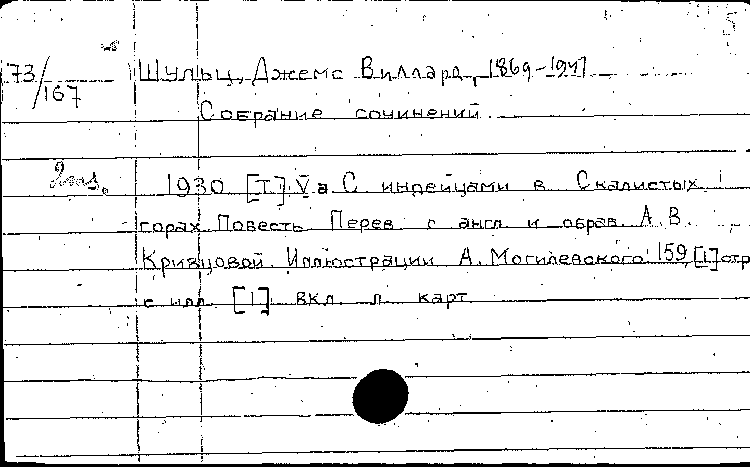 5
73/167 Шульц, Джемс Виллард, 1869-1947
Собрание сочинений
2 экз. 1930 [Т.] V.а С индейцами в Скалистых
горах Повесть Перев с англ и обраб А.В.
Кривцовой Иллюстрации А. Могилевского 159,[1]стр
с илл [1] вкл л карт